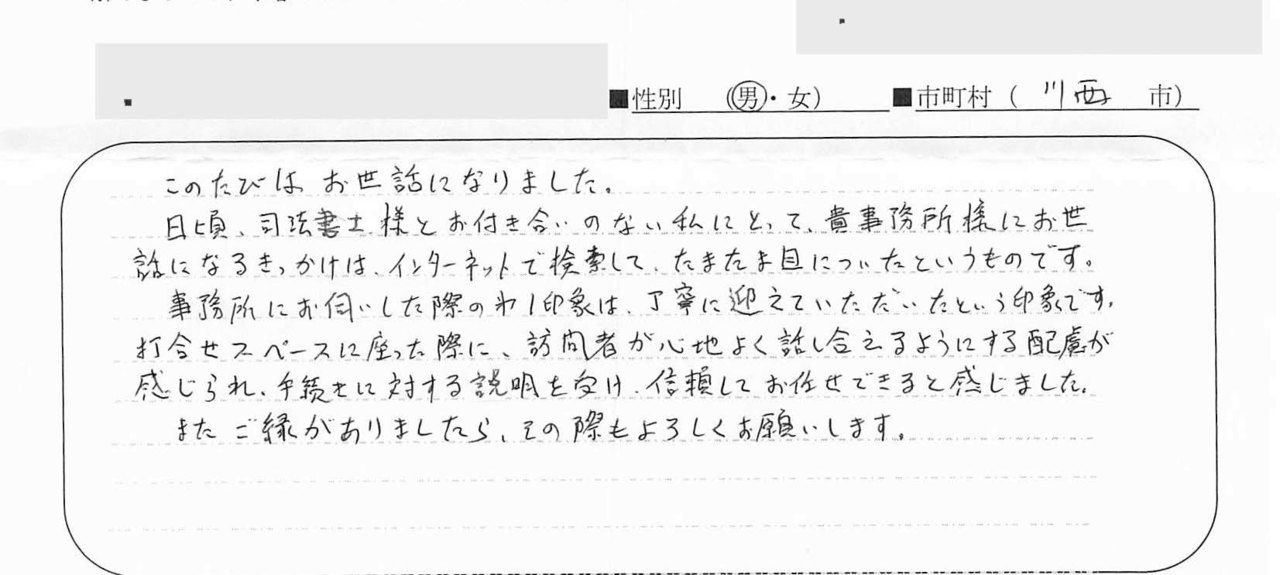 ■性別 (男・女) ■市町村 ( 川西 市)
このたびは お世話になりました。
日頃、司法書士様とお付き合いのない私にとって、貴事務所様にお世
話になるきっかけは、インターネットで検索して、たまたま目についたというものです。
事務所にお伺いした際の第1印象は、丁寧に迎えていただいたという印象です。
打合せスペースに座った際に、訪問者が心地よく話し合えるようにする配慮が
感じられ、手続きに対する説明を受け、信頼してお任せできると感じました。
また ご縁がありましたら、その際もよろしくお願いします。